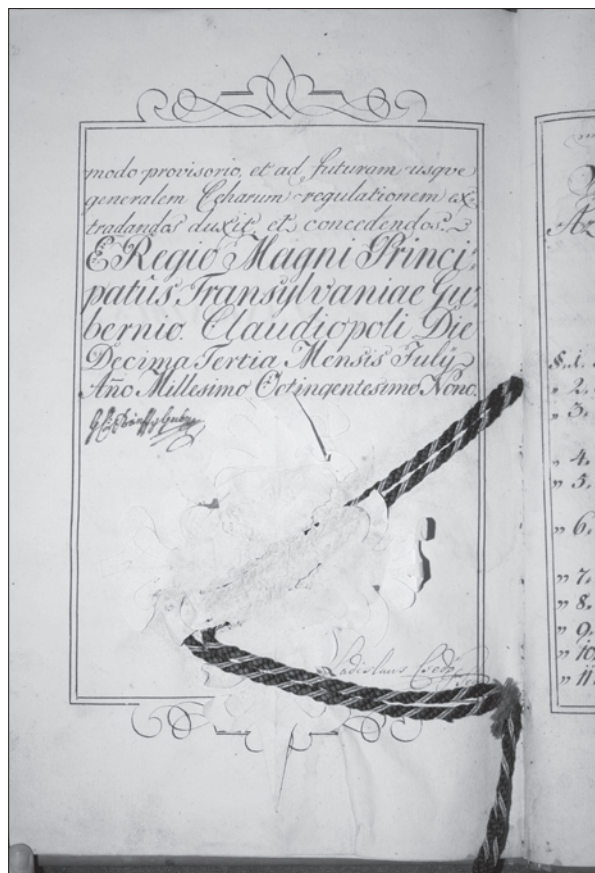 modo provisorio, et ad futuram usqve
generalem Ceharum regulationem ex,
tradandos duxit, et concedendos.
E Regio Magni Princi,
patûs Transylvaniae Gu,
bernio. Claudiopoli Die
Decima Tertia Mensis July
Año Millesimo Octingentesimo Nono.
Ladislaus
Az
§. 1.
" 2.
" 3.
" 4.
" 5.
" 6.
" 7.
" 8.
" 9.
" 10.
" 11.